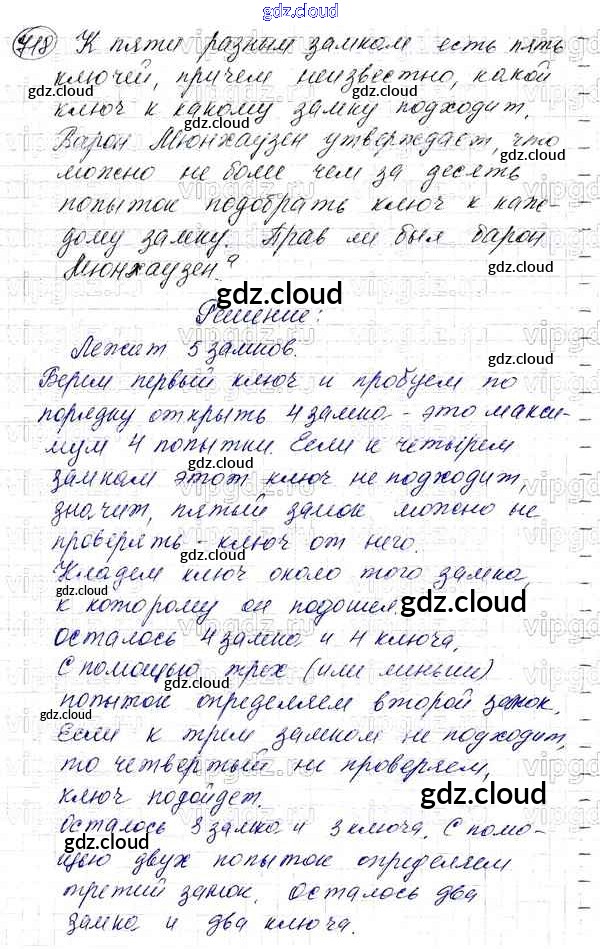 gdz.cloud
718 К пяти разным замкам есть пять
ключей, причем неизвестно, какой
gdz.cloud gdz.cloud
ключ к какому замку подходит.
Барон Мюнхаузен утверждает, что
gdz.cloud
можно не боле чем за десять
попыток подобрать ключ к каж-
дому замку. Прав ли был барон
Мюнхаузен?
gdz.cloud
Решение:
Лежат 5 замков.
gdz.cloud
Берем первый ключ и пробуем по
порядку открыть 4 замка - это макси-
мум 4 попытки. Если к четырем
gdz.cloud
замкам этот ключ не подходит,
значит, пятый замок можно не
проверять - ключ от него.
gdz.cloud
Кладем ключ около того замка,
к которому он подошел
gdz.cloud
осталось 4 замка и 4 ключа.
С помощью трех (или меньши)
gdz.cloud
попыток определяем второй замок.
gdz.cloud
Если к трем замкам не подходит,
то четвертый не проверяем,
ключ подойдет.
gdz.cloud
осталось 3 замка и 3 ключа. С помо-
щью двух попыток определяем
gdz.cloud
третий замок. осталось два
замка и два ключа.
gdz.cloud